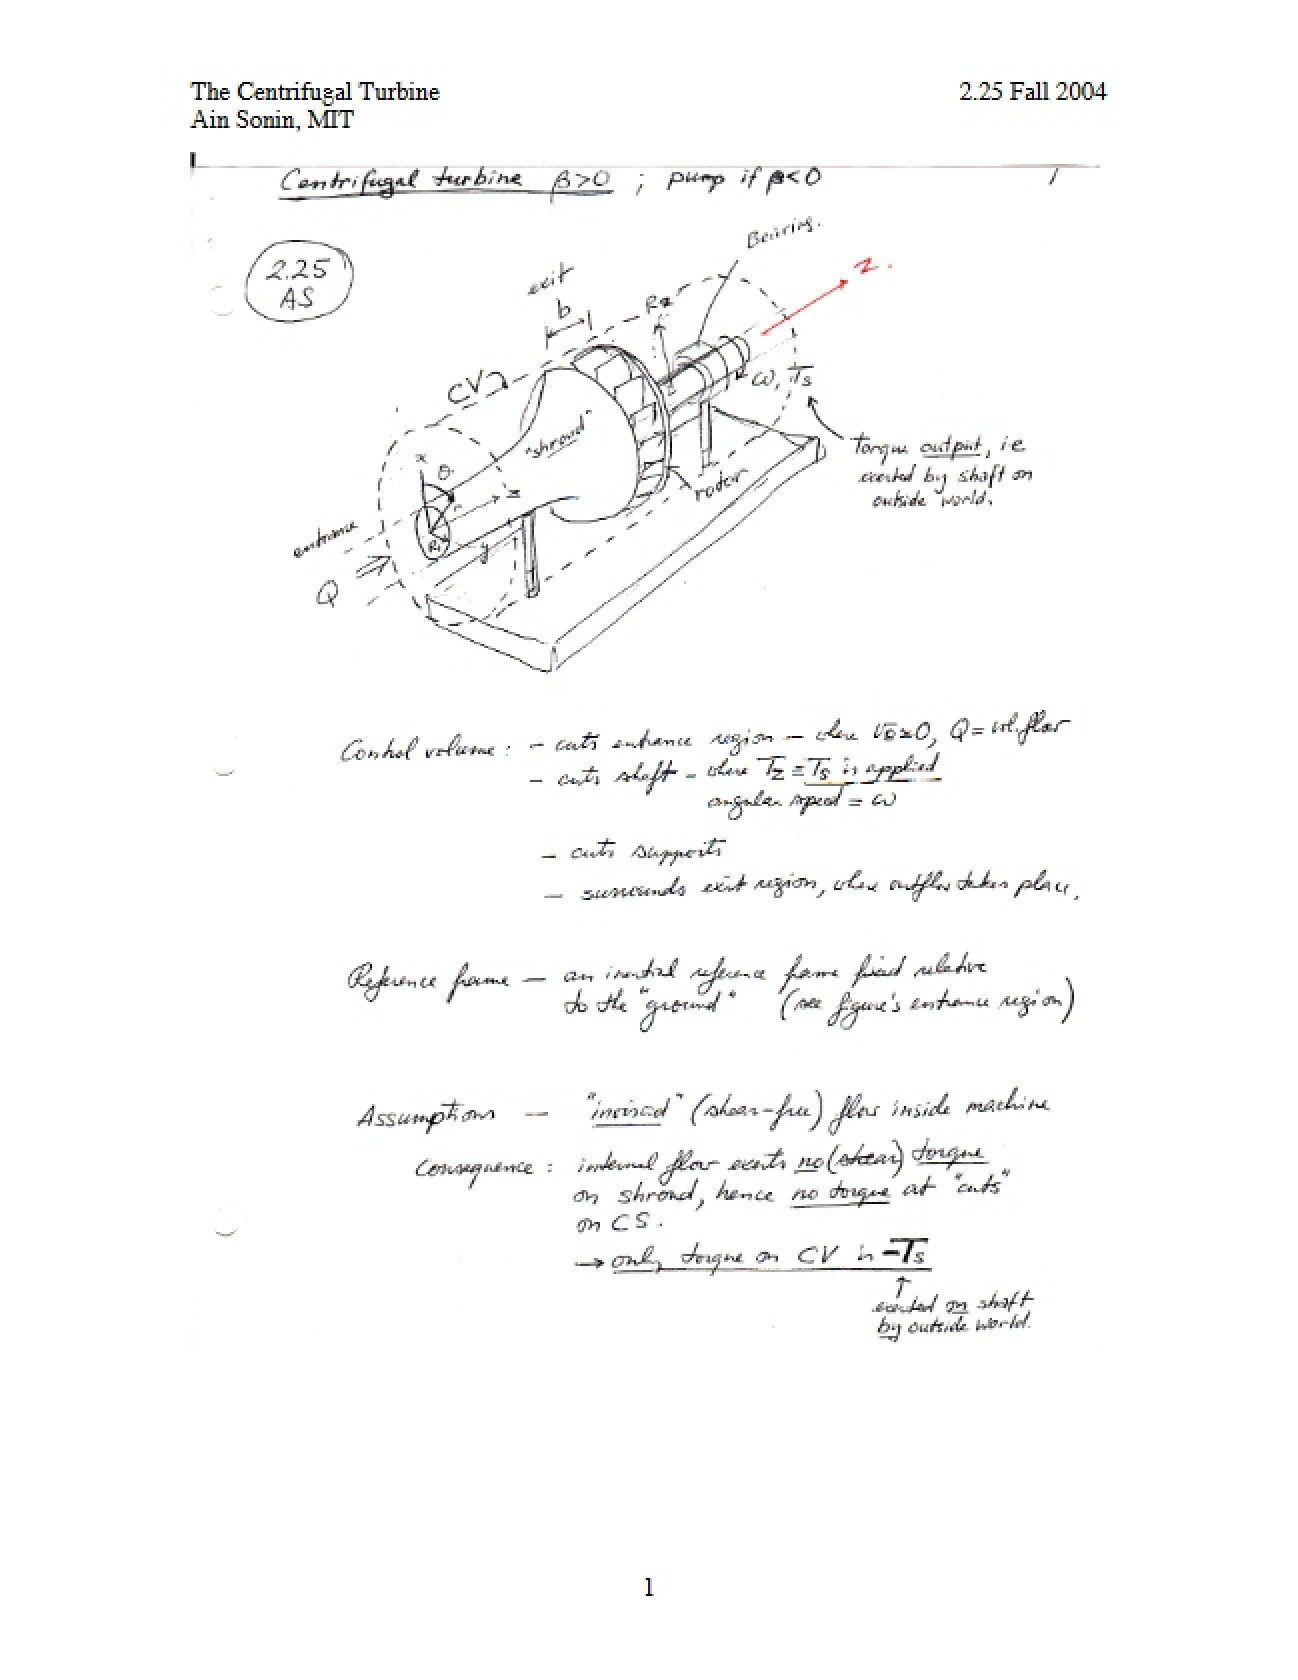 The Centrifugal Turbine 2.25 Fall 2004
Ain Sonin, MIT
Centrifugal turbine β>0 ; pump if β<0 1
2.25
AS
Bearing.
z.
exit
b
R2
CV
ω, Ts
"shroud"
x
θ
r
z
torque output, i.e
exerted by shaft on
outside world.
rotor
entrance
R1
y
Q
Control volume: – cuts entrance region – where vθ≈0, Q = vol. flow
– cuts shaft – where Tz = Ts is applied
angular speed = ω
– cuts supports
– surrounds exit region, where outflow takes place.
Reference frame – an inertial reference frame fixed relative
to the "ground" (see figure's entrance region)
Assumptions – "inviscid" (shear-free) flow inside machine
Consequence: internal flow exerts no (shear) torque
on shroud, hence no torque at "cuts"
on CS.
→ only torque on CV is -Ts
↑
exerted on shaft
by outside world.
1